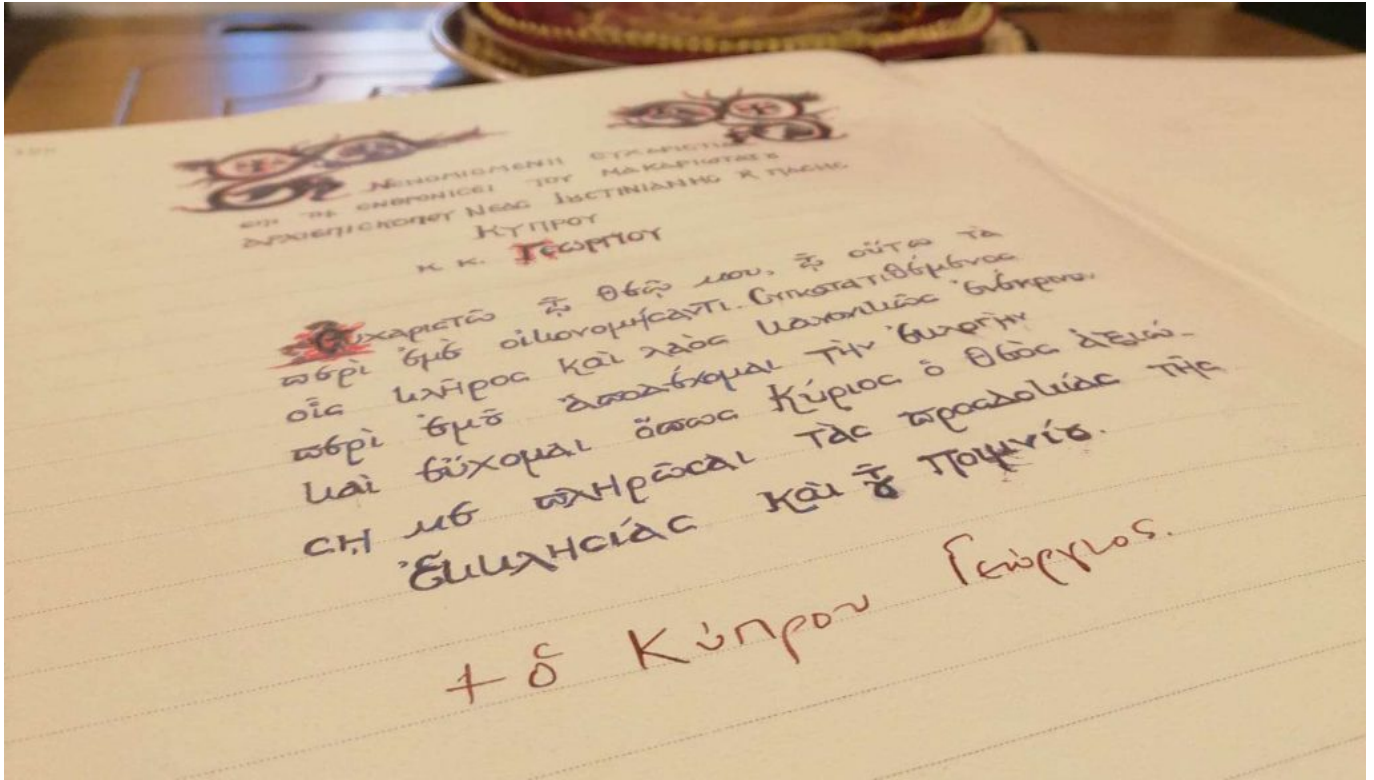 ΝΕΝΟΜΙϹΜΕΝΗ ΕΥΧΑΡΙϹΤΙΑ
ΕΠΙ ΤΗ ΕΝΘΡΟΝΙϹΕΙ ΤΟΥ ΜΑΚΑΡΙΩΤΑΤΟΥ
ΑΡΧΙΕΠΙϹΚΟΠΟΥ ΝΕΑϹ ΙΟΥϹΤΙΝΙΑΝΗϹ Κ ΠΑϹΗϹ
ΚΥΠΡΟΥ
Κ. Κ. ΓΕΩΡΓΙΟΥ
Εὐχαριϲτῶ τῷ Θεῷ μου, τῷ οὕτω τὰ
περὶ ἐμὲ οἰκονομήϲαντι. Ϲυγκατατιθέμενοϲ
οἷϲ κλῆροϲ καὶ λαὸϲ κανονικῶϲ ἐνέκρινε
περὶ ἐμοῦ ἀποδέχομαι τὴν ἐκλογὴν
καὶ εὔχομαι ὅπωϲ Κύριοϲ ὁ Θεὸϲ ἀξιώ-
ϲῃ με πληρῶϲαι τὰϲ προϲδοκίαϲ τῆϲ
Ἐκκληϲίαϲ καὶ τοῦ Ποιμνίου.
+ ὁ Κύπρου Γεώργιος.